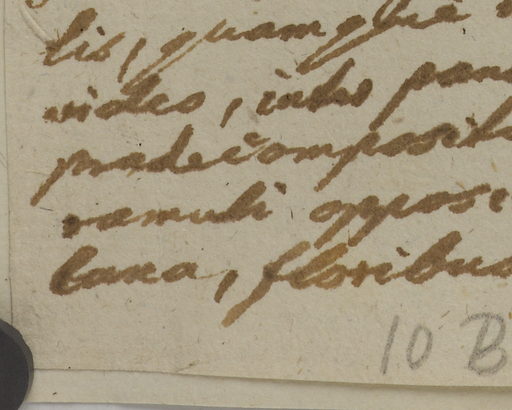 lis, quam glie
video, inter pan
pradecomposit
ramuli opposi
laxa, floribus
10 B